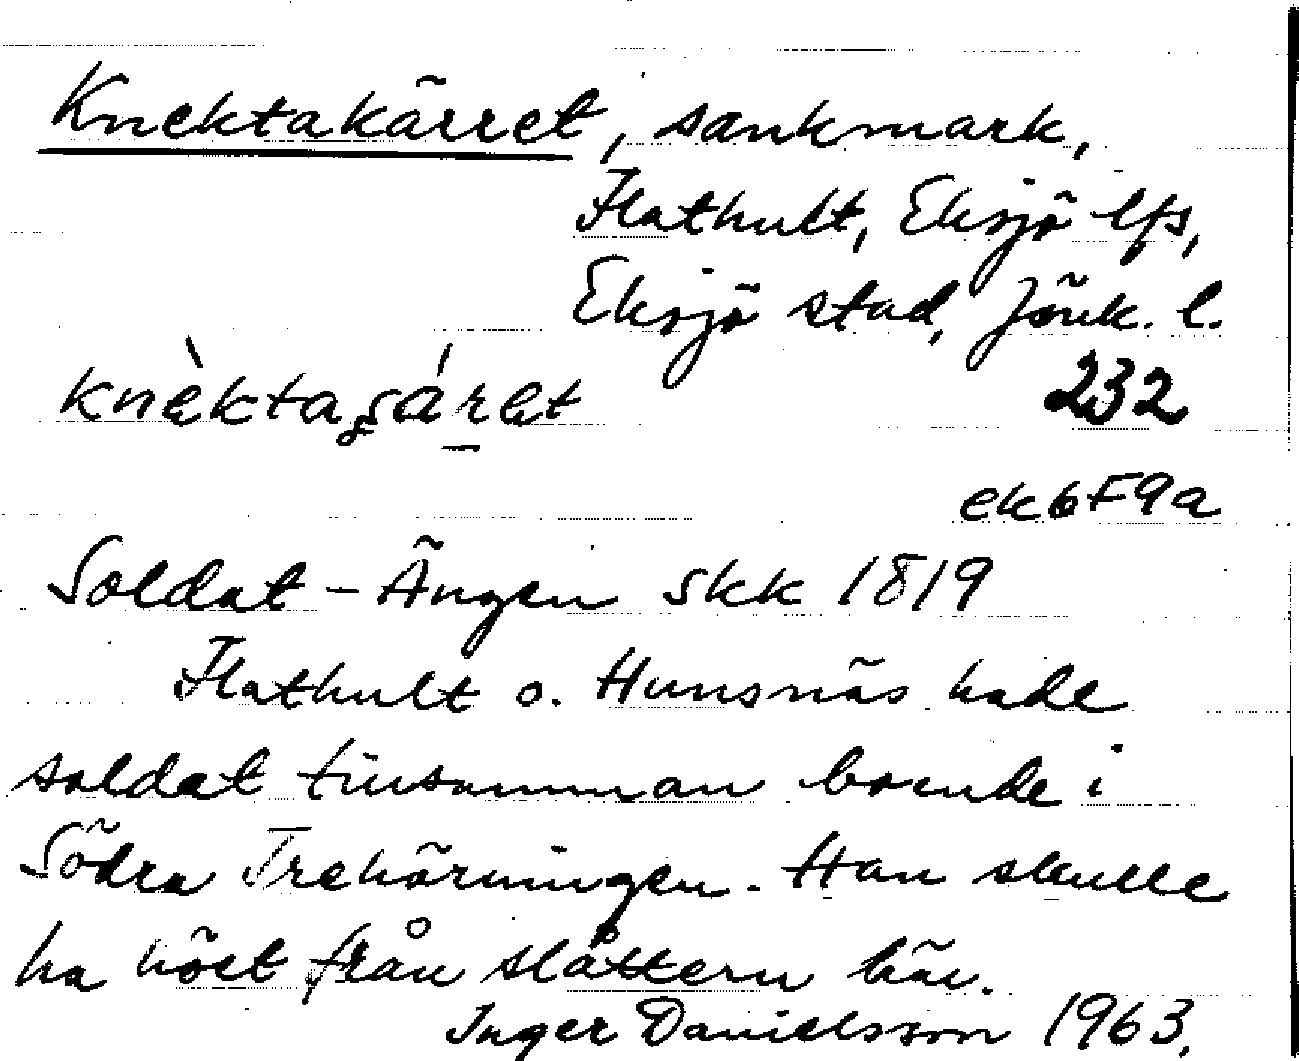 Knektakärret, sankmark,
Flathult, Eksjö lfs,
Eksjö stad, Jönk. l.
232
ek6F9a
Soldat-Ängen skk 1819
Flathult o. Hunsnäs hade
soldat tillsamman boende i
Södra Trehörningen. Han skulle
ha höet från slåttern här.
Inger Danielsson 1963.